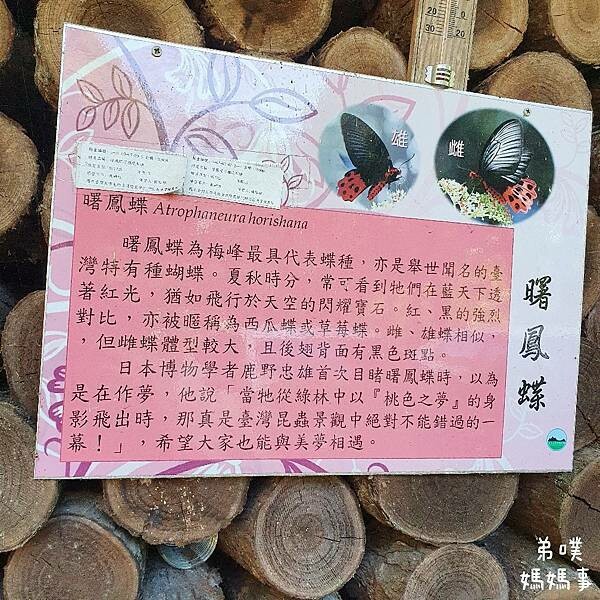 20
30
0
20
雄
雌
曙鳳蝶 Atrophaneura horishana
曙鳳蝶為梅峰最具代表蝶種，亦是舉世聞名的臺
灣特有種蝴蝶。夏秋時分，常可看到牠們在藍天下透
著紅光，猶如飛行於天空的閃耀寶石。紅、黑的強烈
對比，亦被暱稱為西瓜蝶或草莓蝶。雌、雄蝶相似，
，但雌蝶體型較大，且後翅背面有黑色斑點。
日本博物學者鹿野忠雄首次目睹曙鳳蝶時，以為
是在作夢，他說「當牠從綠林中以『桃色之夢』的身
影飛出時，那真是臺灣昆蟲景觀中絕對不能錯過的一
幕！」，希望大家也能與美夢相遇。
曙鳳蝶
弟噗
媽媽事